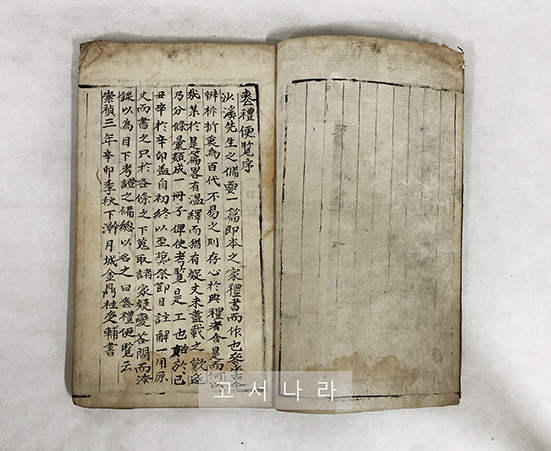 喪禮便覽序
沙溪先生之備要一篇即本之家禮書而作也發古今
辨析折衷為百代不易之則存心於典禮者舍是而何以
哉某於是篇畧有溫繹而猶有疑文未盡載之歎
乃分條彙類成一冊子俾使考覽是工也始於己
丑辛於辛卯盖自初終以至喪祭節目註解一用原
文而書之只於各條之下蒐取諸家疑變答問而添
錄以為目下考證之備總以名之曰喪禮便覽云
崇禎三年辛卯季秋下澣月城金鼎柱受輔書
고서나라